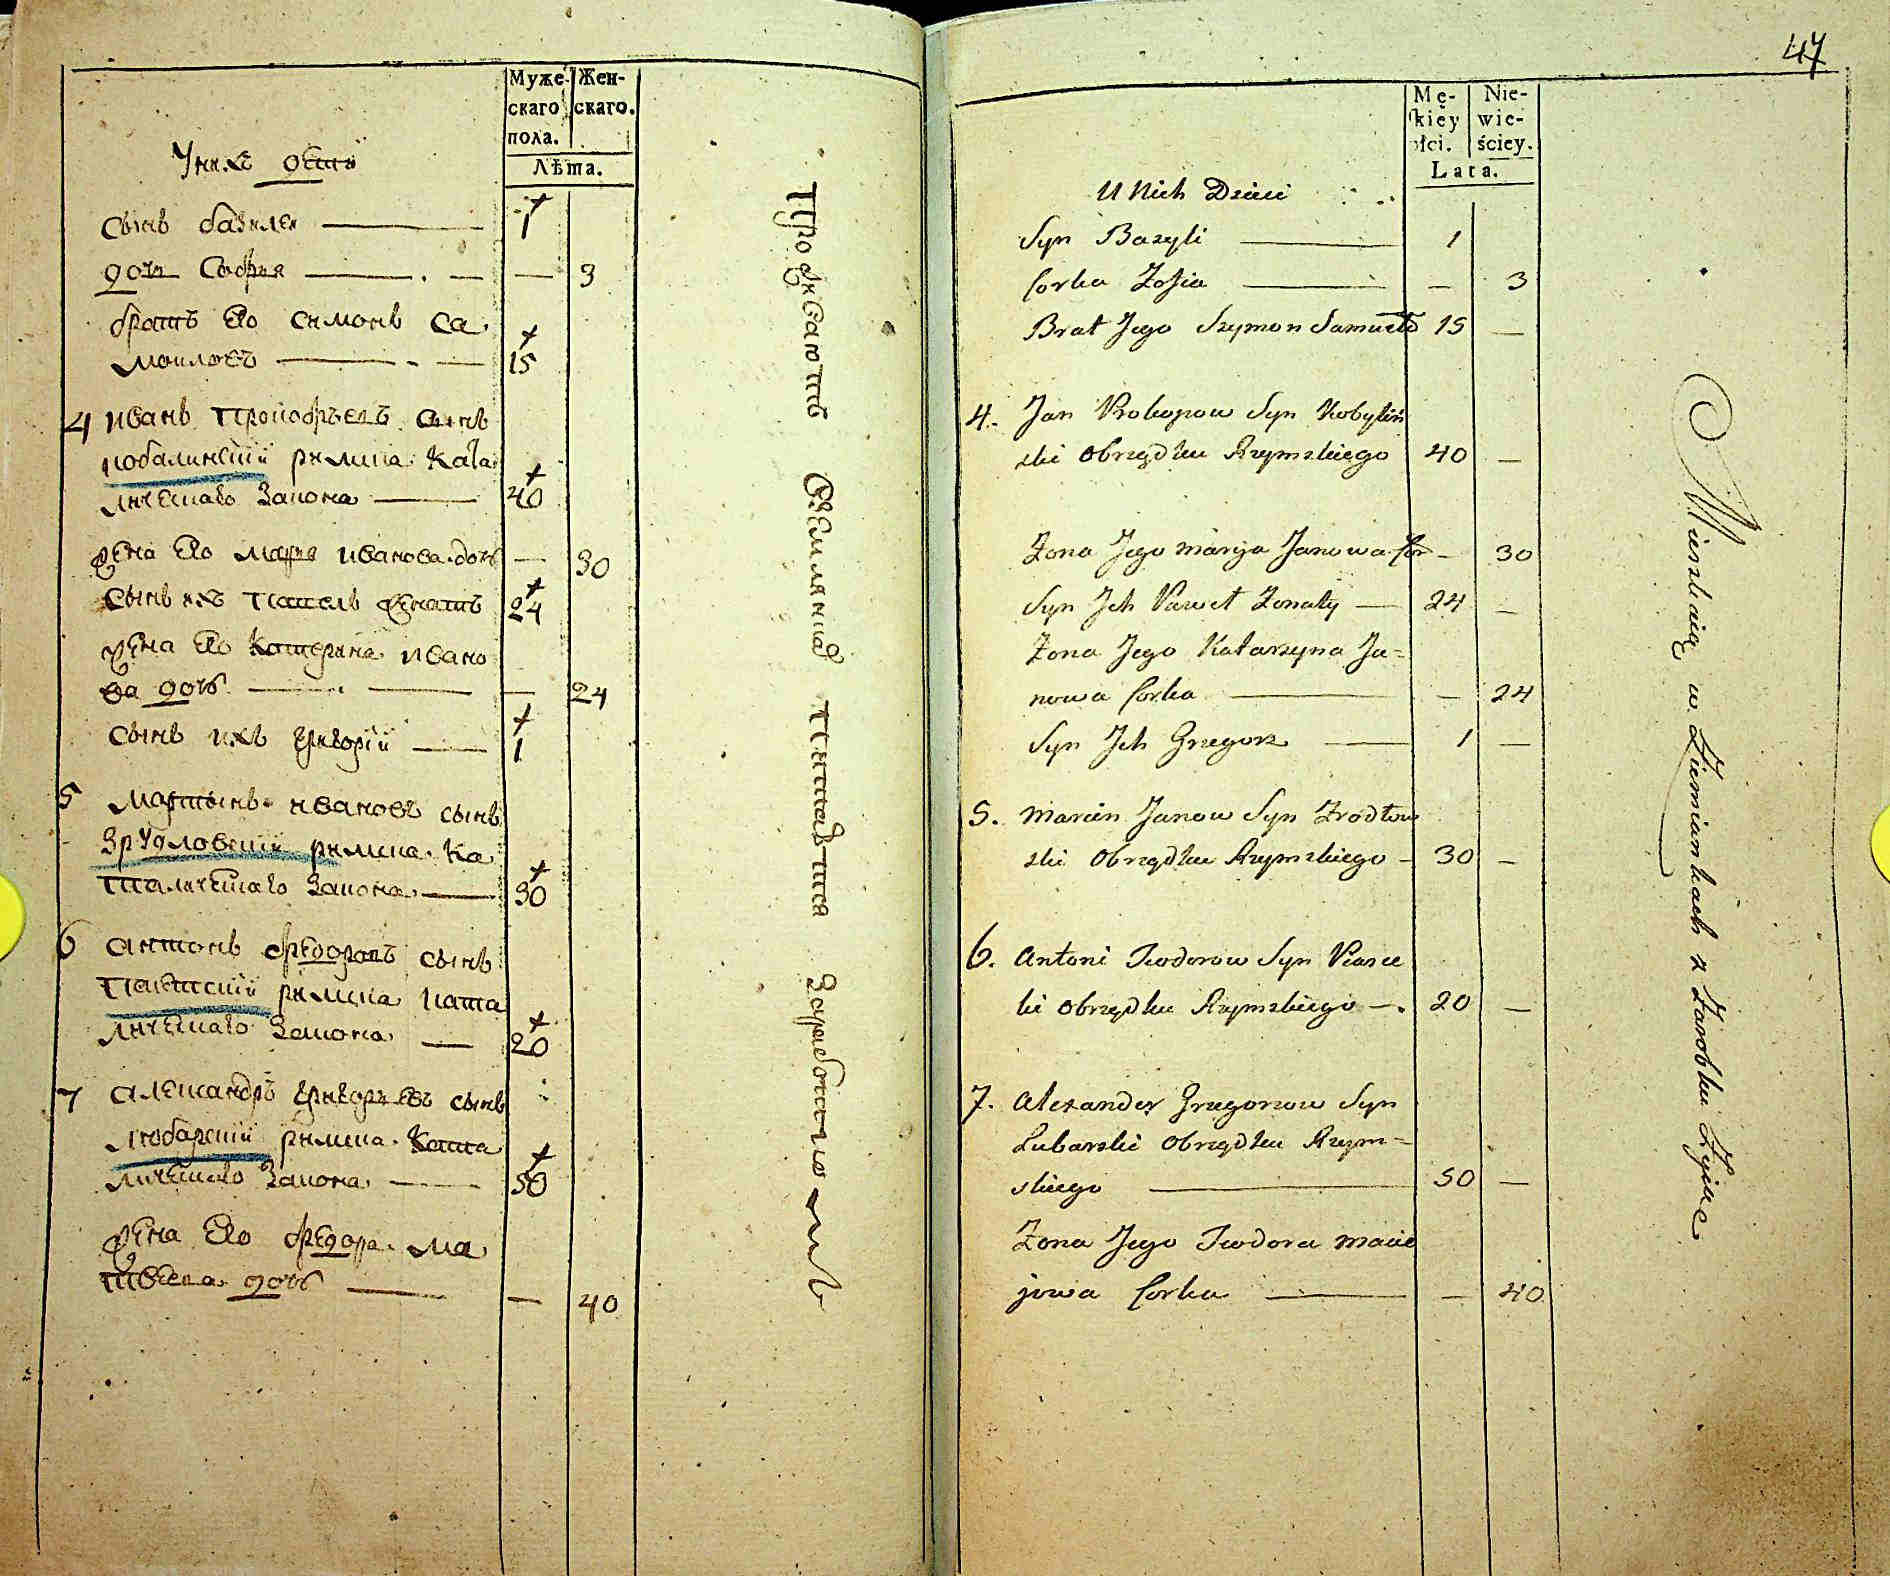 Муже-
скаго
пола.
Жен-
скаго.
Лѣта.
Уних дети
сынъ базилеи 1
дочь София — 3
братъ Его симонъ са
моиловъ 15
4 иванъ Прокофьевъ сынъ
кобалинскии римскаКата
лическаго Закона 40
жена Его Мария иванова дочь — 30
сынъ ихъ Павелъ женатъ 24
жена Его Катерина ивано
ва дочь — 24
сынъ ихъ григории 1
5 Мартынъ ивановъ сынъ
Зрудловскии римска Ка
талическаго Закона 30
6 антонъ федоровъ сынъ
римска ката
лическаго Закона 20
7 александръ григорьевъ сынъ
любарскии римска Ката
лическаго Закона 50
жена Его федора ма
твеева дочь — 40
Проживаютъ Земл
Заработкюю
47
Mę-
kiey
płci.
Nie-
wie-
ściey.
Lata.
U Nich Dzieci
Syn Bazyli 1
Corka Zofia — 3
Brat Jego Szymon Samueło 15 —
4. Jan Prokopow Syn Kobyliń
ski Obrządku Rzymskiego 40 —
Zona Jego marya Janowa Cor — 30
Syn Jch Paweł Zonaty — 24 —
Zona Jego Katarzyna Ja=
nowa Corka — 24
Syn Jch Grzegorz 1 —
5. Marcin Janow Syn Zrodłow
ski Obrządku Rzymskiego — 30 —
6. Antoni Teodorow Syn Piasec
ki Obrządku Rzymskiego — 20 —
7. Alexander Grzegorzow Syn
Lubarski Obrządku Rzym=
skiego 50 —
Zona Jego Teodora Macie
jowa Corka — 40
Mieszkaią w Ziemiankach z Zarobku Zyiąc